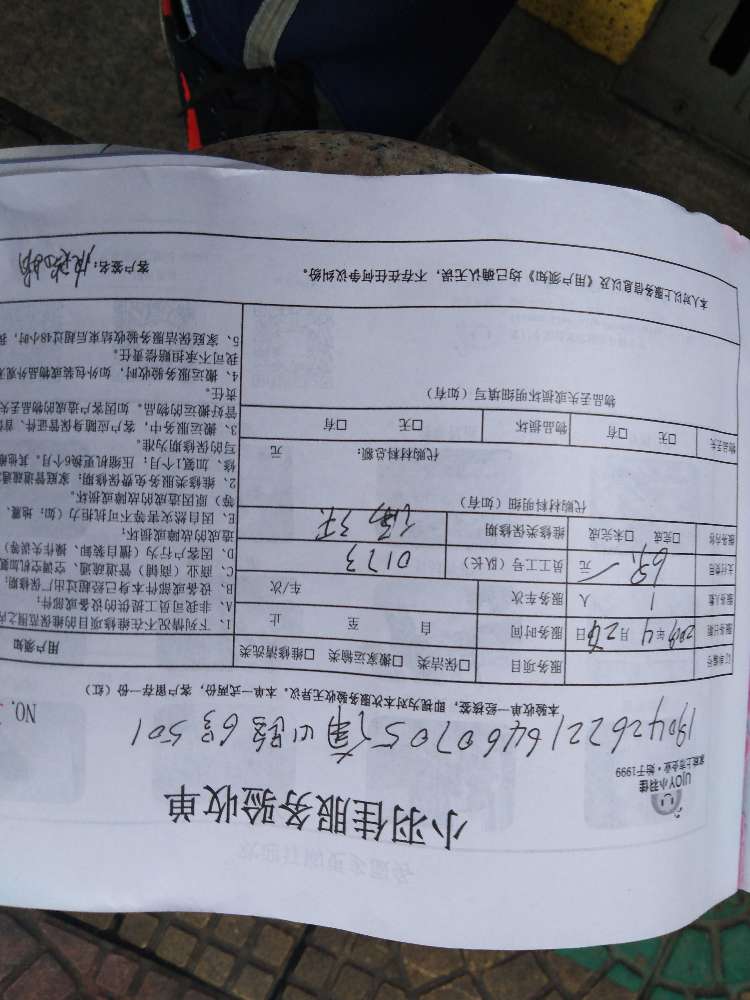 小羽佳服务验收单
UJOY小羽佳
家庭上市企业·始于1999
1904262216460705 63 501
本验收单一经签核，即视为对本次服务验收无异议。本单一式两份，客户留存一份（红）
NO.
订单编号 服务项目 □保洁类 □搬家运输类 □维修清洗类
服务日期 2019年4月26日 服务时间 自 至 止
服务人数 1 人 服务车次 车/次
支付费用 元 员工工号（队长） 0173
服务内容 □完成 □未完成 维修类保修期
代购材料明细（如有）
代购材料总额： 元
物品丢失 □无 □有 物品损坏 □无 □有
物品丢失或损坏明细填写（如有）
用户须知
1、下列情况不在维修项目的维保范围之内
A、非我司员工提供的设备或部件；
B、设备或部件本身已经超过出厂保修期；
C、商业（商铺）管道疏通、空调空机加氟
D、因客户行为（擅自装卸、操作失误等）
造成的故障或损坏；
E、因自然灾害等不可抗拒力（如：地震、
等）原因造成的故障或损坏。
2、维修类服务免费保修期：家庭管道疏通
修、加氟1个月；压缩机更换6个月。其他
写的保修期为准。
3、搬运服务中，客户应随身保管证件、首
管好搬运的物品。如因客户造成的物品丢失
责任。
4、搬运服务验收时，如外包装或物品外观
我司不承担赔偿责任。
5、家庭保洁服务验收结束后超过48小时，我
本人对以上服务信息以及《用户须知》均已确认无误，不存在任何争议纠纷。
客户签名：